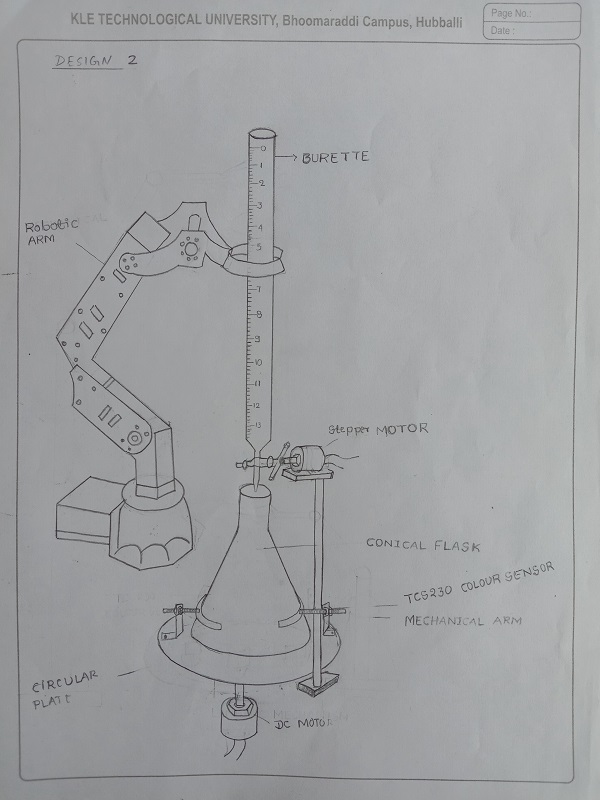 KLE TECHNOLOGICAL UNIVERSITY, Bhoomaraddi Campus, Hubballi
Page No.:
Date :
DESIGN 2
BURETTE
Robotic
ARM
0
1
2
3
4
5
7
8
9
10
11
12
13
Stepper MOTOR
CONICAL FLASK
TCS230 COLOUR SENSOR
MECHANICAL ARM
CIRCULAR
PLATE
DC MOTOR